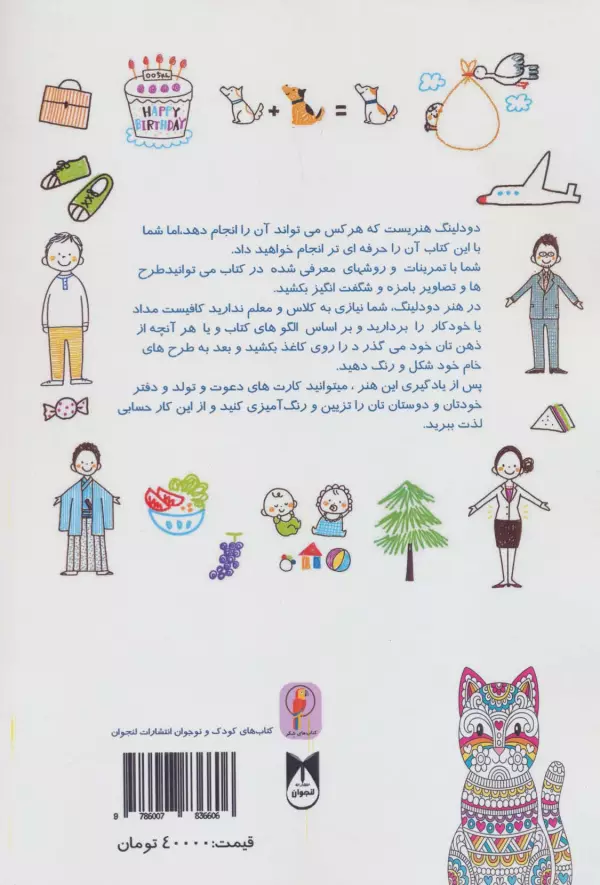 HAPPY
BIRTHDAY
+ =
دودلینگ هنریست که هرکس می تواند آن را انجام دهد،اما شما
با این کتاب آن را حرفه ای تر انجام خواهید داد.
شما با تمرینات و روشهای معرفی شده در کتاب می توانیدطرح
ها و تصاویر بامزه و شگفت انگیز بکشید.
در هنر دودلینگ، شما نیازی به کلاس و معلم ندارید کافیست مداد
یا خودکار را بردارید و بر اساس الگو های کتاب و یا هر آنچه از
ذهن تان خود می گذر د را روی کاغذ بکشید و بعد به طرح های
خام خود شکل و رنگ دهید.
پس از یادگیری این هنر ، میتوانید کارت های دعوت و تولد و دفتر
خودتان و دوستان تان را تزیین و رنگ‌آمیزی کنید و از این کار حسابی
لذت ببرید.
کتاب‌های
کتاب‌های کودک و نوجوان انتشارات لنجوان
انتشارات
لنجوان
9 786007 836606
قیمت:۴۰۰۰۰ تومان